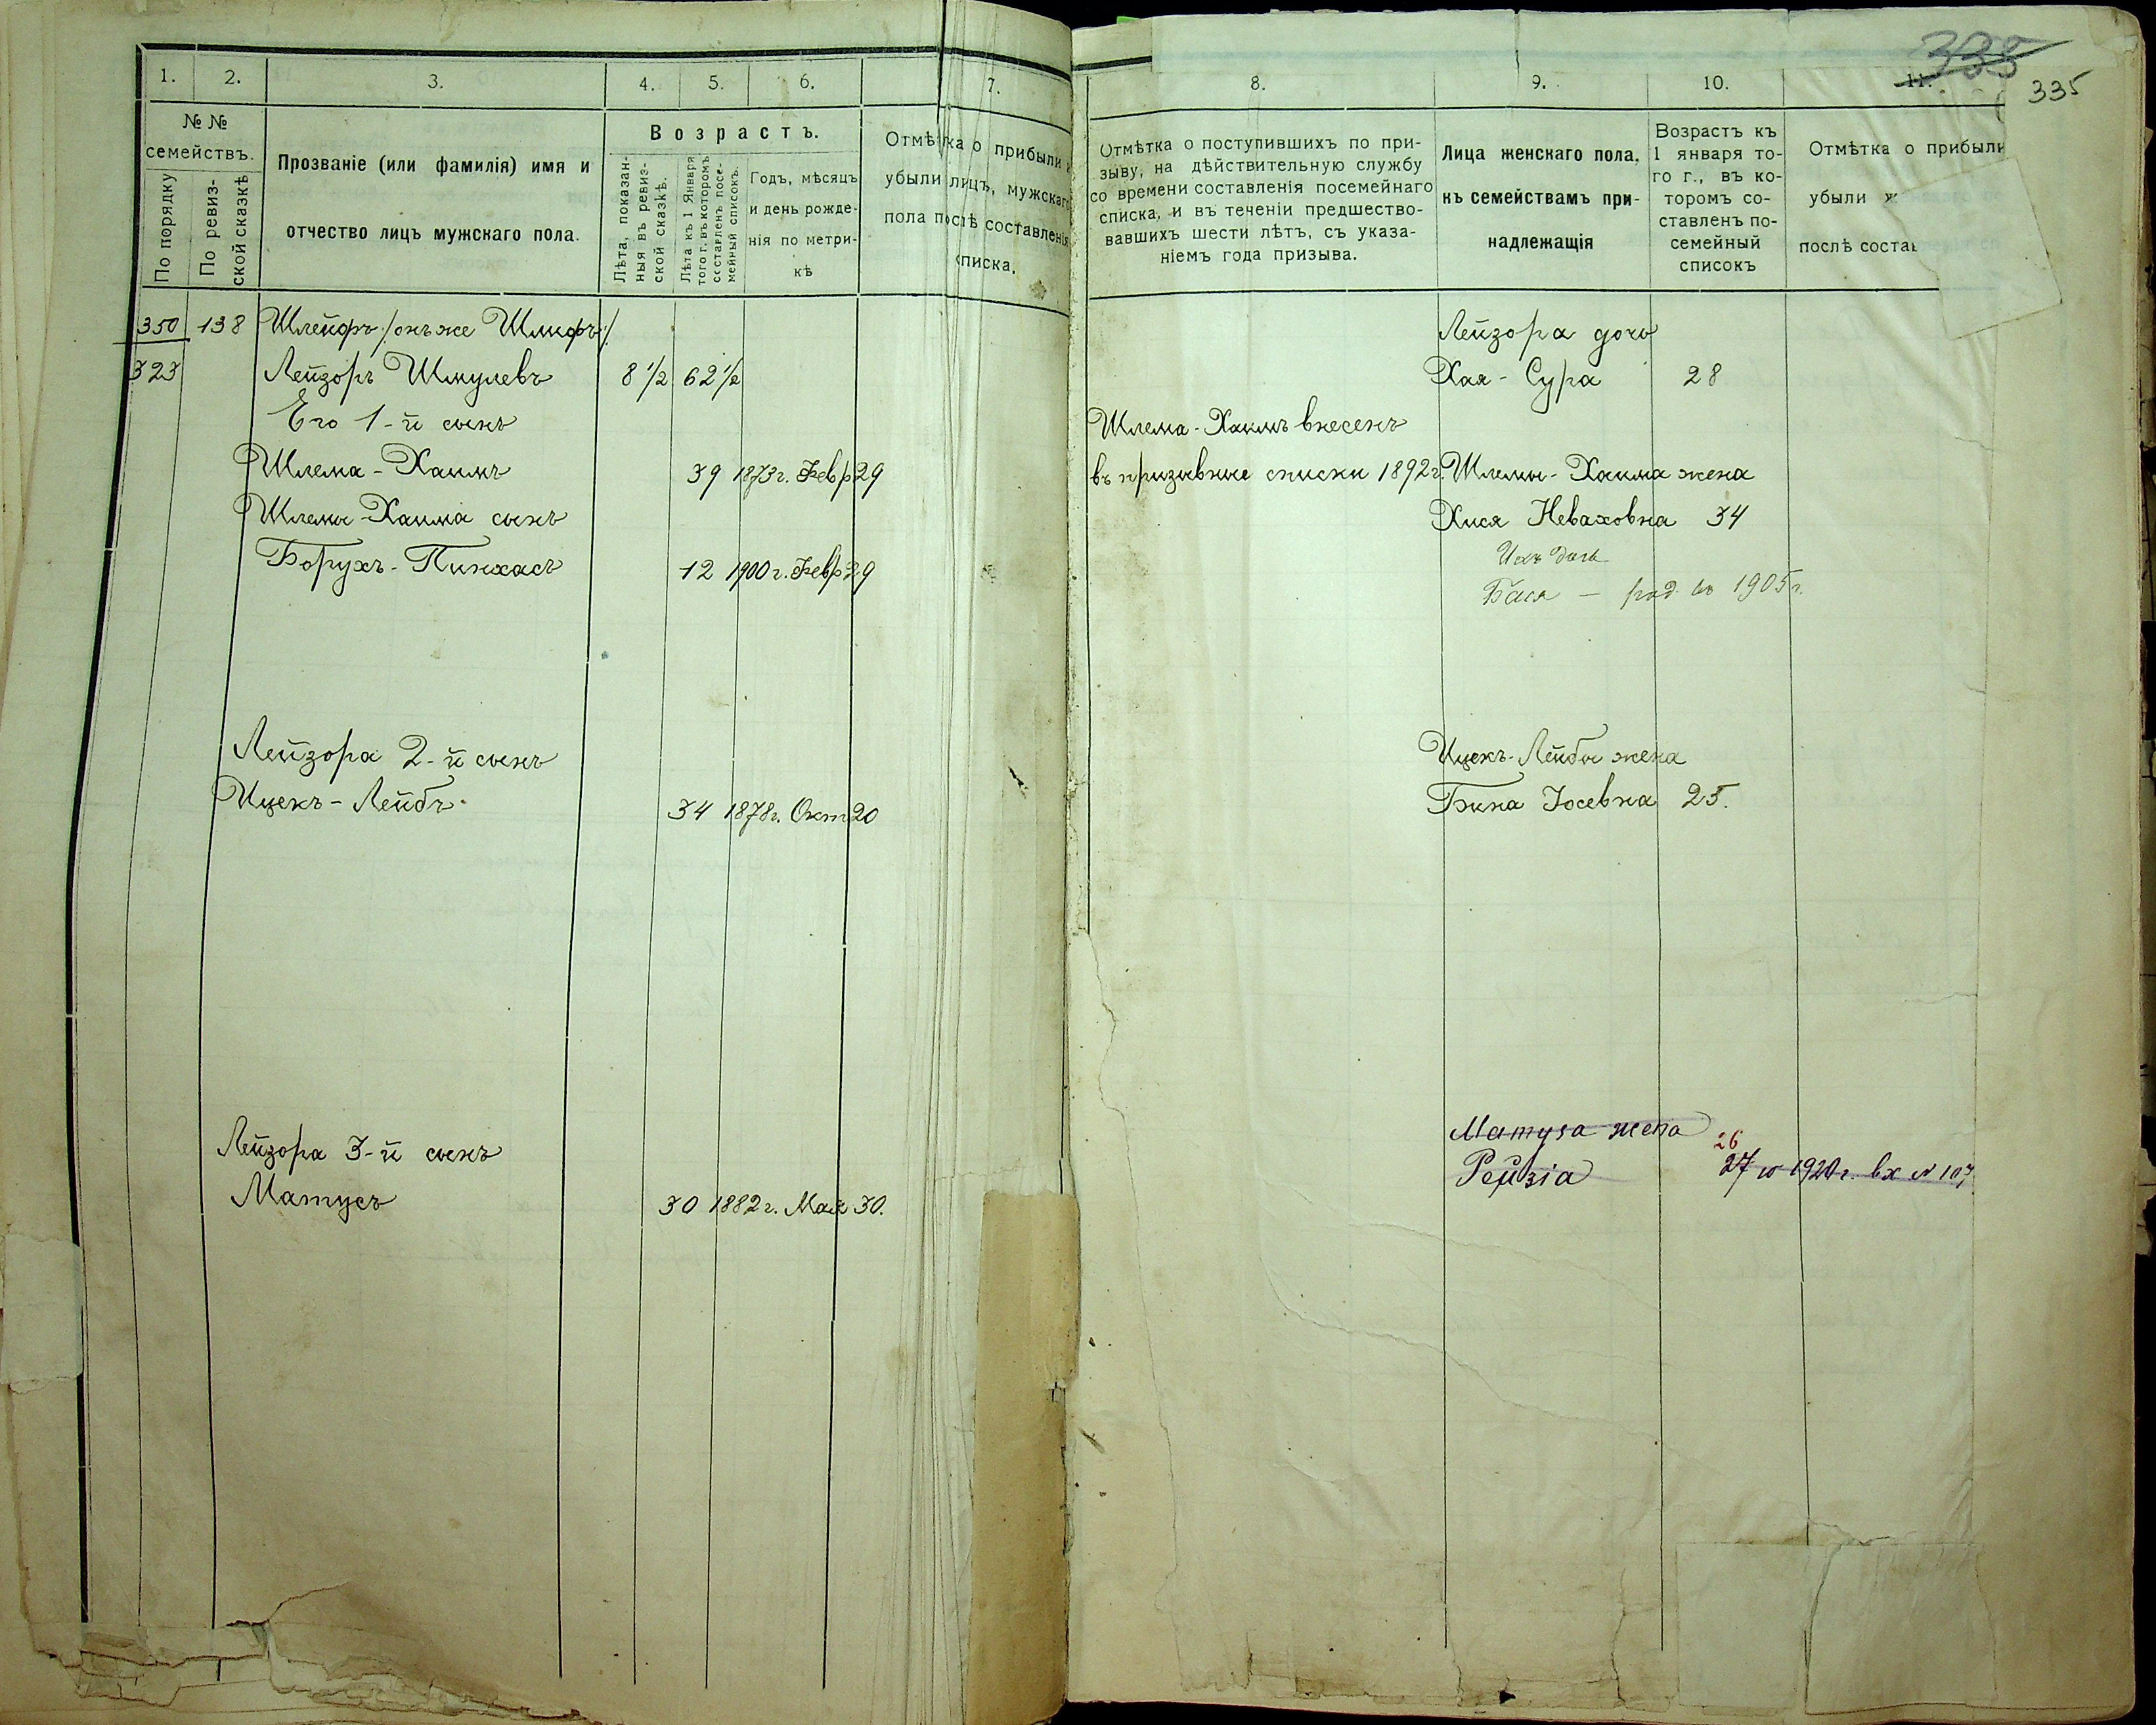 335
335
1. 2. 3. 4. 5. 6. 7.
№ №
семействъ.
По порядку
По ревиз-
ской сказкѣ
Прозваніе (или фамилія) имя и
отчество лицъ мужскаго пола.
Возрастъ.
Лѣта, показан-
ныя въ ревиз-
ской сказкѣ.
Лѣта къ 1 Января
того г. въ которомъ
составленъ посе-
мейный списокъ.
Годъ, мѣсяцъ
и день рожде-
нія по метри-
кѣ
Отмѣтка о прибыли
убыли лицъ, мужскаго
пола послѣ составленія
списка.
350 138 Шлейфъ /онъ же Шлифъ/
323 Лейзоръ Шмулевъ 8 1/2 62 1/2
Его 1-й сынъ
Шлема-Хаимъ 39 1873 г. Февр 29
Шлемы-Хаима сынъ
Борухъ-Пинхасъ 12 1900 г. Февр 29
Лейзора 2-й сынъ
Ицекъ-Лейбъ 34 1878 г. Окт 20
Лейзора 3-й сынъ
Матусъ 30 1882 г. Мая 30.
8. 9. 10. 11.
Отмѣтка о поступившихъ по при-
зыву, на дѣйствительную службу
со времени составленія посемейнаго
списка, и въ теченіи предшество-
вавшихъ шести лѣтъ, съ указа-
ніемъ года призыва.
Лица женскаго пола,
къ семействамъ при-
надлежащія
Возрастъ къ
1 января то-
го г., въ ко-
торомъ со-
ставленъ по-
семейный
списокъ
Отмѣтка о прибыли
убыли ж
послѣ состав
Лейзора дочь
Хая-Сура 28
Шлема-Хаимъ внесенъ
въ призывные списки 1892 г. Шлемы-Хаима жена
Хися Неваховна 34
Ихъ дочь
Бася — род. въ 1905 г.
Ицекъ-Лейбы жена
Бина Іосевна 25.
Матуса жена
26
Рейзіа 27 1920 г. вх №